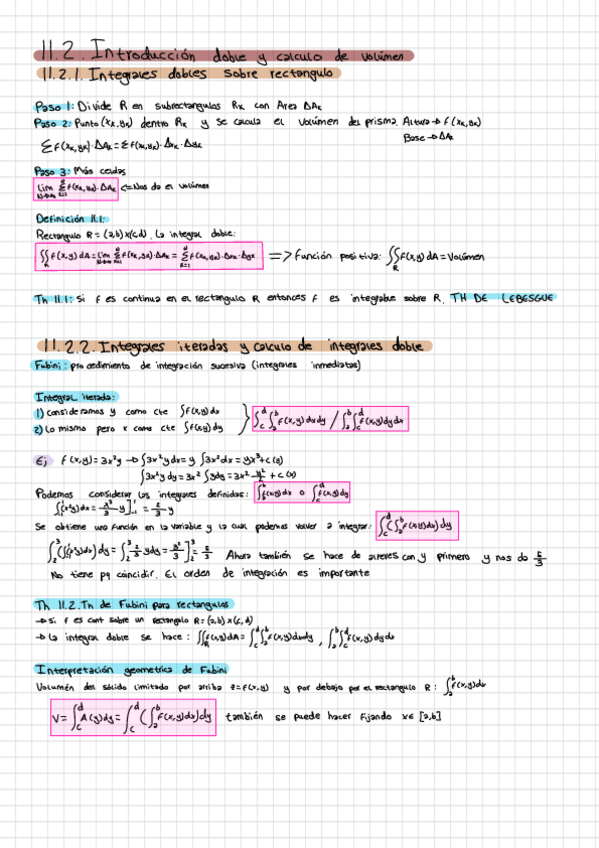 11.2. Introducción doble y calculo de volúmen
11.2.1. Integrales dobles sobre rectangulo
Paso 1: Divide R en subrectangulos Rₖ con Area ΔAₖ
Paso 2: Punto (xₖ,yₖ) dentro Rₖ y se calcula el volúmen del prisma. Altura → f(xₖ,yₖ)
Base → ΔAₖ
Σ f(xₖ,yₖ)·ΔAₖ = Σ f(xₖ,yₖ)·Δxₖ·Δyₖ
Paso 3: Más celdas
lim Σ f(xₖ,yₖ)·ΔAₖ <= Nos da el volúmen
Definición 11.1:
Rectangulo R = (a,b)x(c,d). La integral doble:
∬_R f(x,y) dA = lim Σ f(xₖ,yₖ)·ΔAₖ = Σ f(xₖ,yₖ)·Δxₖ·Δyₖ => Función positiva: ∬_R f(x,y) dA = Volúmen
Th 11.1: Si f es continua en el rectangulo R entonces f es integrable sobre R. TH DE LEBESGUE
11.2.2. Integrales iteradas y calculo de integrales doble
Fubini: procedimiento de integración sucesiva (integrales inmediatas)
Integral iterada:
1) Consideramos y como cte ∫f(x,y)dx
2) Lo mismo pero x como cte ∫f(x,y)dy } ∫_c^d ∫_a^b f(x,y)dxdy / ∫_a^b ∫_c^d f(x,y)dydx
Ej f(x,y) = 3x²y → ∫3x²y dx = y ∫3x²dx = yx³ + c(y)
∫3x²y dy = 3x² ∫ydy = 3x² y²/2 + c(x)
Podemos considerar las integrales definidas: ∫_a^b f(x,y)dx o ∫_c^d f(x,y)dy
Se obtiene una función en la variable y la cual podemos volver a integrar: ∫_c^d (∫_a^b f(x,y)dx) dy
Ahora también se hace de alreves con y primero y nos da 5/3
No tiene pq coincidir. El orden de integración es importante
Th 11.2. Th de Fubini para rectangulos
→ Si f es cont sobre un rectangulo R = (a,b)x(c,d)
→ La integral doble se hace: ∬_R f(x,y)dA = ∫_c^d ∫_a^b f(x,y)dxdy , ∫_a^b ∫_c^d f(x,y)dydx
Interpretación geometrica de Fubini
Volumén del sólido limitado por arriba z = f(x,y) y por debajo por el rectangulo R: ∫_a^b f(x,y)dx
V = ∫_c^d A(y)dy = ∫_c^d (∫_a^b f(x,y)dx)dy también se puede hacer fijando x∈[a,b]